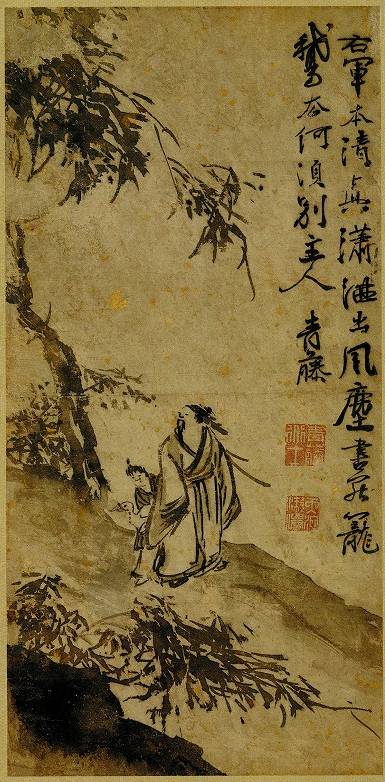 右軍本清真瀟灑出風塵書罷籠
鵝去何須別主人
青藤